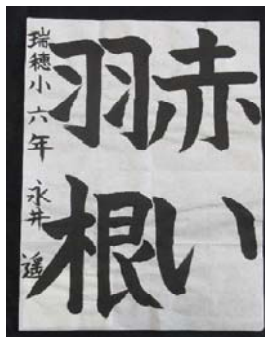 赤い
羽根
瑞穂小 六年 永井 遥